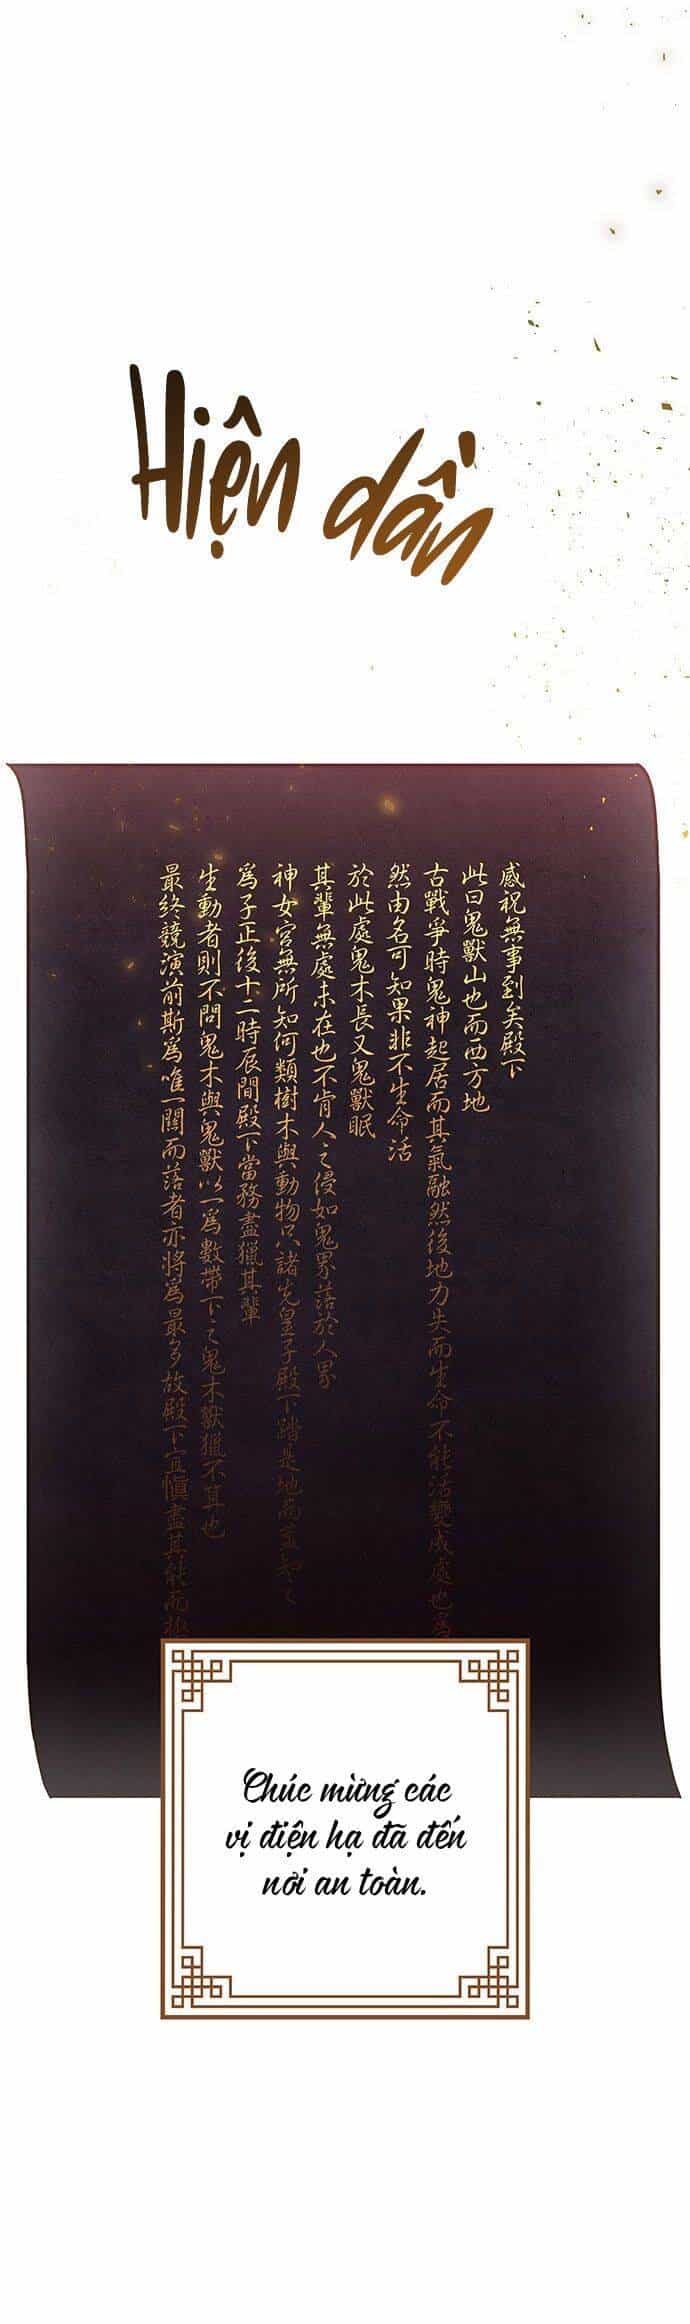 Hiện dần
感祝無事到矣殿下
此曰鬼獸山也而西方地
古戰爭時鬼神起居而其氣融然後地力失而生命不能活變成處也爲
然由名可知果非不生命活
於此處鬼木長又鬼獸眠
其輩無處未在也不肯人之侵如鬼界落於人界
神女宮無所知何類樹木與動物只諸先皇子殿下踏是地而盖知之
爲子正後十二時辰間殿下當務盡獵其輩
生動者則不問鬼木與鬼獸以一爲數帶下之鬼木獸獵不算也
最終競演前斯爲唯一關而落者亦將爲最多故殿下宜愼盡其能而
Chúc mừng các
vị điện hạ đã đến
nơi an toàn.